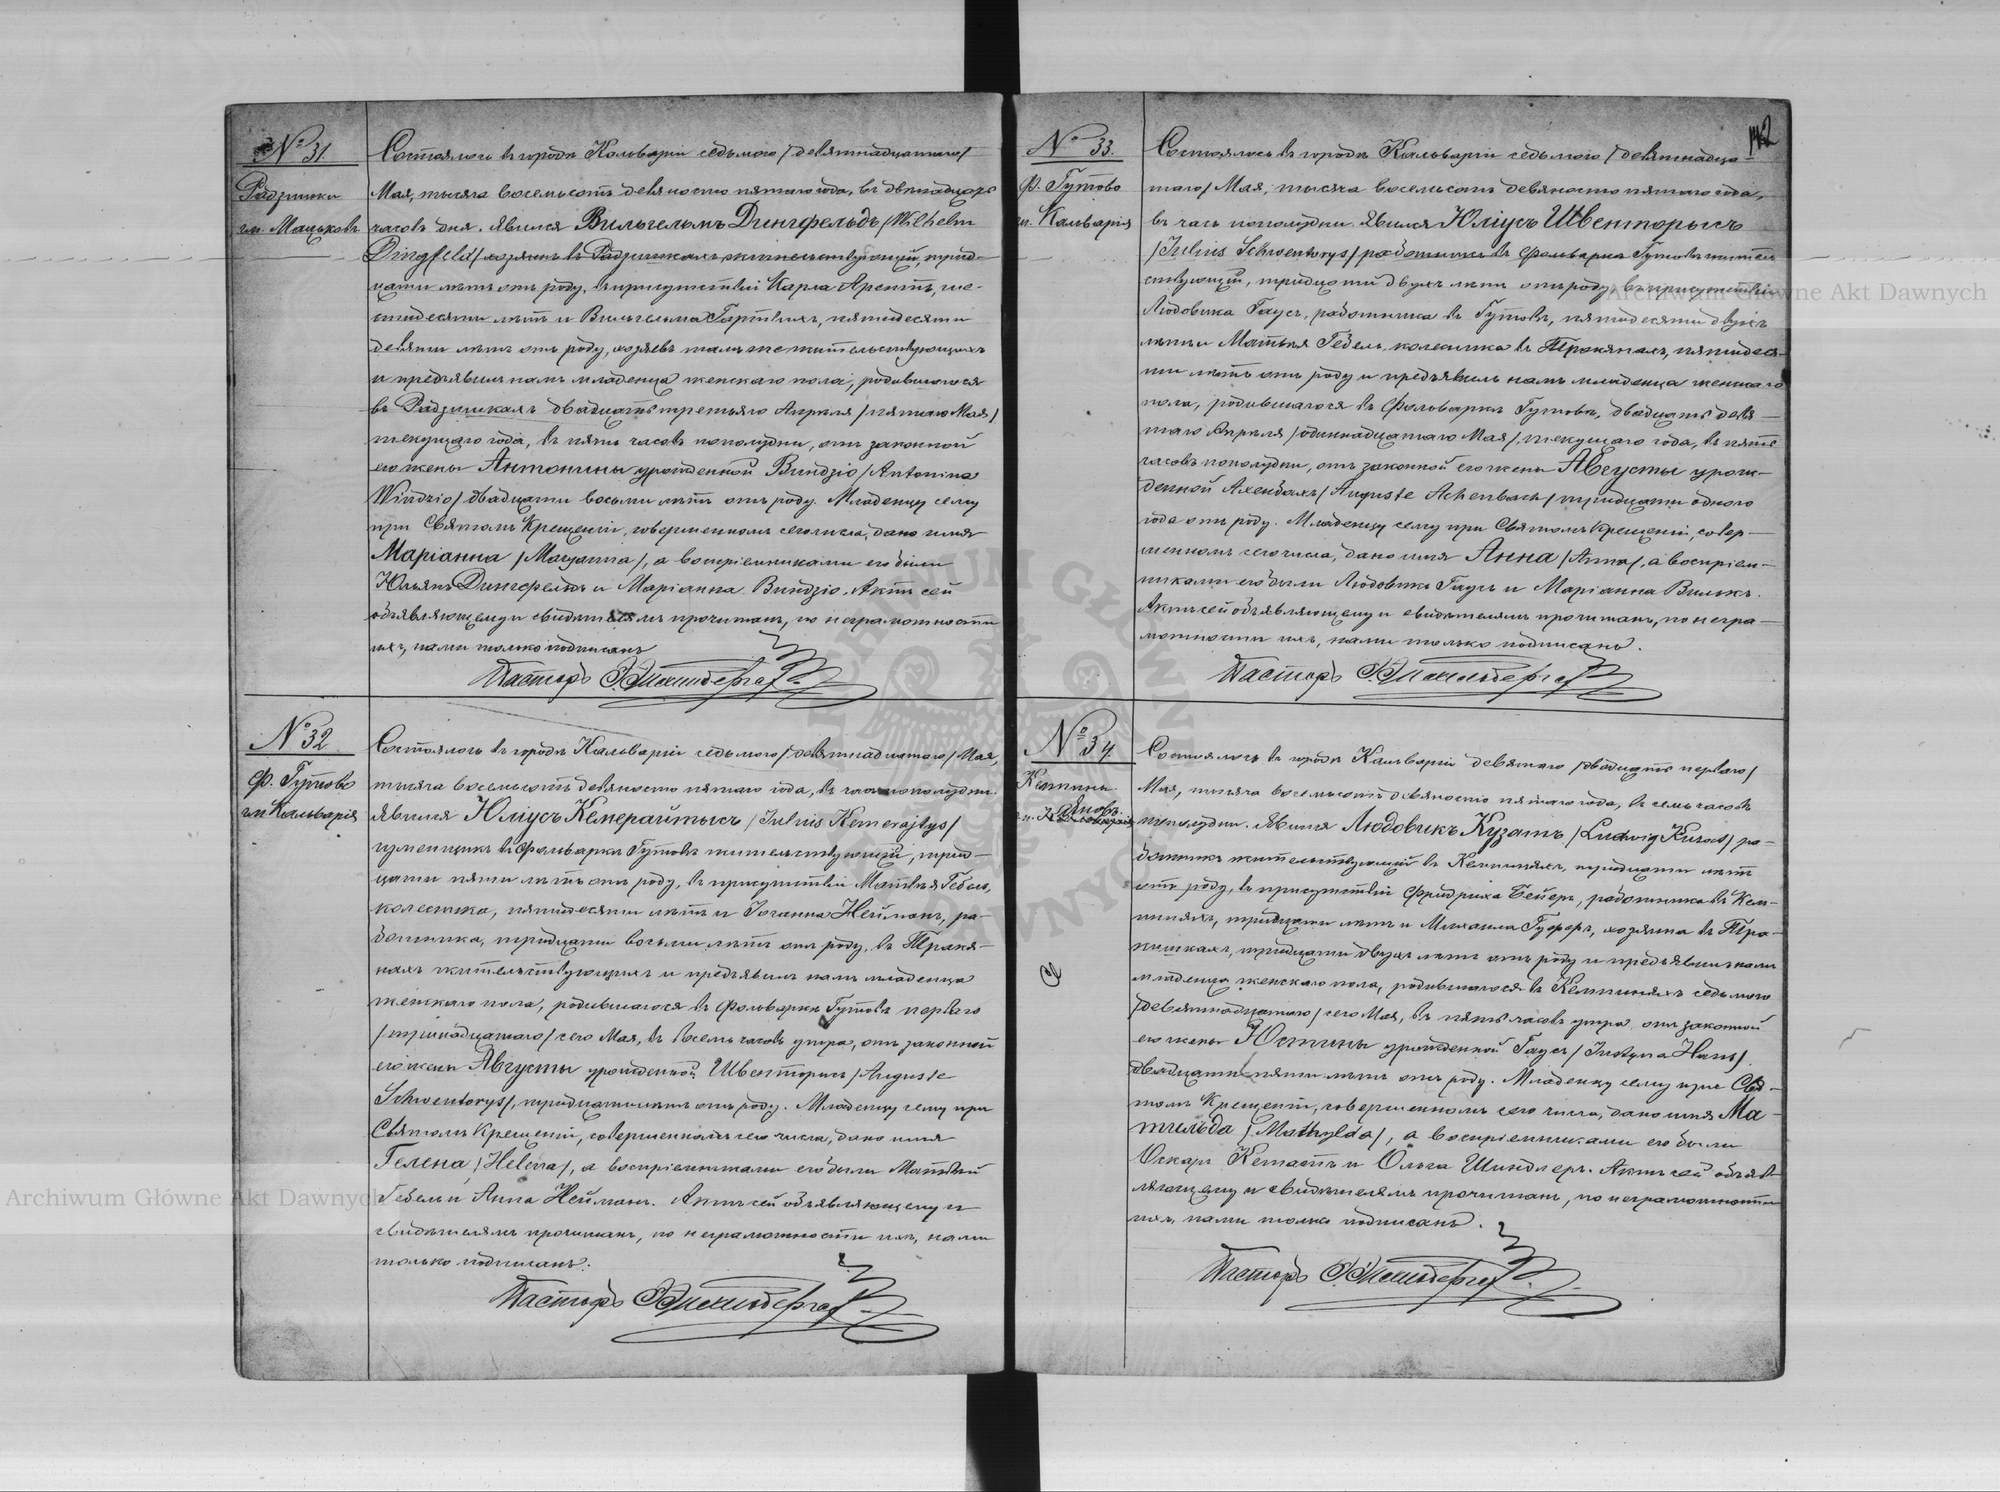 № 31.
Радзишки
гм. Мацьковъ
Состоялось въ городѣ Кальваріи седьмого /девятнадцатаго/
Мая, тысяча восемьсотъ девяносто пятаго года, въ двѣнадцать
часовъ дня. Явился Вильгельмъ Дингфельдъ /Wilhelm
Dingfeld/ хозяинъ въ Радзишкахъ жительствующій, трид-
цати лѣтъ отъ роду, въ присутствіи Карла Арентъ, ше-
стидесяти лѣтъ и Вильгельма Гартвихъ, пятидесяти
девяти лѣтъ отъ роду, хозяевъ тамъ же жительствующихъ
и предъявилъ намъ младенца женскаго пола, родившагося
въ Радзишкахъ двадцать третьяго Апрѣля /пятаго Мая/
текущаго года, въ пять часовъ пополудни, отъ законной
его жены Антонины урожденной Виндзіо /Antonina
Windzio/ двадцати восьми лѣтъ отъ роду. Младенцу сему
при Святомъ Крещеніи, совершенномъ сего числа, дано имя
Маріанна /Maryanna/, а воспріемниками его были
Юльянъ Дингфельдъ и Маріанна Виндзіо. Актъ сей
объявляющему и свидѣтелямъ прочитанъ, по неграмотности
ихъ, нами только подписанъ
Пасторъ
№ 32
Ф. Гутово
гм. Кальварія
Состоялось въ городѣ Кальваріи седьмого /девятнадцатаго/ Мая,
тысяча восемьсотъ девяносто пятаго года, въ часъ пополудни.
Явился Юліусъ Кемерайтысъ /Julius Kemerajtys/
гуменщикъ въ фольваркѣ Гутовѣ жительствующій, трид-
цати пяти лѣтъ отъ роду, въ присутствіи Матвѣя Гебель,
колесника, пятидесяти лѣтъ и Іоганна Нейманъ, ра-
ботника, тридцати восьми лѣтъ отъ роду, въ Тракя-
нахъ жительствующихъ и предъявилъ намъ младенца
женскаго пола, родившагося въ фольваркѣ Гутовѣ перваго
/тринадцатаго/ сего Мая, въ восемь часовъ утра, отъ законной
его жены Августы урожденной Швенторысъ /Auguste
Schwentorys/, тридцати лѣтъ отъ роду. Младенцу сему при
Святомъ Крещеніи, совершенномъ сего числа, дано имя
Гелена /Helena/, а воспріемниками его были Матвѣй
Гебель и Анна Нейманъ. Актъ сей объявляющему и
свидѣтелямъ прочитанъ, по неграмотности ихъ, нами
только подписанъ.
Пасторъ
142
№ 33.
Ф. Гутово
гм. Кальварія
Состоялось въ городѣ Кальваріи седьмого /девятнадца-
таго/ Мая, тысяча восемьсотъ девяносто пятаго года,
въ часъ пополудни. Явился Юліусъ Швенторысъ
/Julius Schwentorys/ работникъ въ фольваркѣ Гутовѣ житель-
ствующій, тридцати двухъ лѣтъ отъ роду, въ присутствіи
Людовика Гаусъ, работника въ Гутовѣ, пятидесяти двухъ
лѣтъ и Матвѣя Гебель, колесника въ Тракянахъ, пятидеся-
ти лѣтъ отъ роду и предъявилъ намъ младенца женскаго
пола, родившагося въ фольваркѣ Гутовѣ, двадцать девя-
таго Апрѣля /одиннадцатаго Мая/, текущаго года, въ пять
часовъ пополудни, отъ законной его жены Августы урож-
денной Ахенбахъ /Auguste Achenbach/ тридцати одного
года отъ роду. Младенцу сему при Святомъ Крещеніи, совер-
шенномъ сего числа, дано имя Анна /Anna/, а воспріем-
никами его были Людовикъ Гаусъ и Маріанна Вилькъ.
Актъ сей объявляющему и свидѣтелямъ прочитанъ, по негра-
мотности ихъ, нами только подписанъ.
Пасторъ
№ 34.
Состоялось въ городѣ Кальваріи девятаго /двадцать перваго/
Мая, тысяча восемьсотъ девяносто пятаго года, въ семь часовъ
пополудни. Явился Людовикъ Кузатъ /Ludwig Kusat/ ра-
ботникъ жительствующій въ Кемпиняхъ, тридцати лѣтъ
отъ роду, въ присутствіи Фридриха Бейеръ, работника въ Кем-
пиняхъ, тридцати лѣтъ и Михаила Гуферъ, хозяина въ Тра-
кишкахъ, тридцати двухъ лѣтъ отъ роду и предъявилъ намъ
младенца женскаго пола, родившагося въ Кемпиняхъ седьмого
/девятнадцатаго/ сего Мая, въ пять часовъ утра, отъ законной
его жены Юстины урожденной Гаусъ /Justyna Haus/
двадцати пяти лѣтъ отъ роду. Младенцу сему при Свя-
томъ Крещеніи, совершенномъ сего числа, дано имя Ма-
тильда /Mathylda/, а воспріемниками его были
Оскаръ и Ольга Шиндлеръ. Актъ сей объяв-
ляющему и свидѣтелямъ прочитанъ, по неграмотности
ихъ, нами только подписанъ.
Пасторъ
Archiwum Główne Akt Dawnych
Archiwum Główne Akt Dawnych
ARCHIWUM GŁÓWNE AKT DAWNYCH